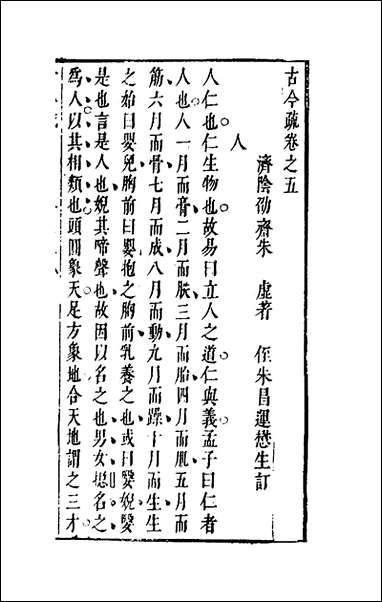 古今疏卷之五
濟陰劭齋朱　虛著　侄朱昌運懋生訂
人
人仁也仁生物也故易曰立人之道仁與義孟子曰仁者
人也人一月而膏二月而朕三月而胎四月而胤五月而
筋六月而骨七月而成八月而動九月而躁十月而生生
之始曰嬰兒胸前曰嬰抱之胸前乳養之也或曰嫛婗嫛
是也言是人也婗其啼聲也故因以名之也男女縂名之
爲人以其相類也頭圓象天足方象地合天地謂之三才